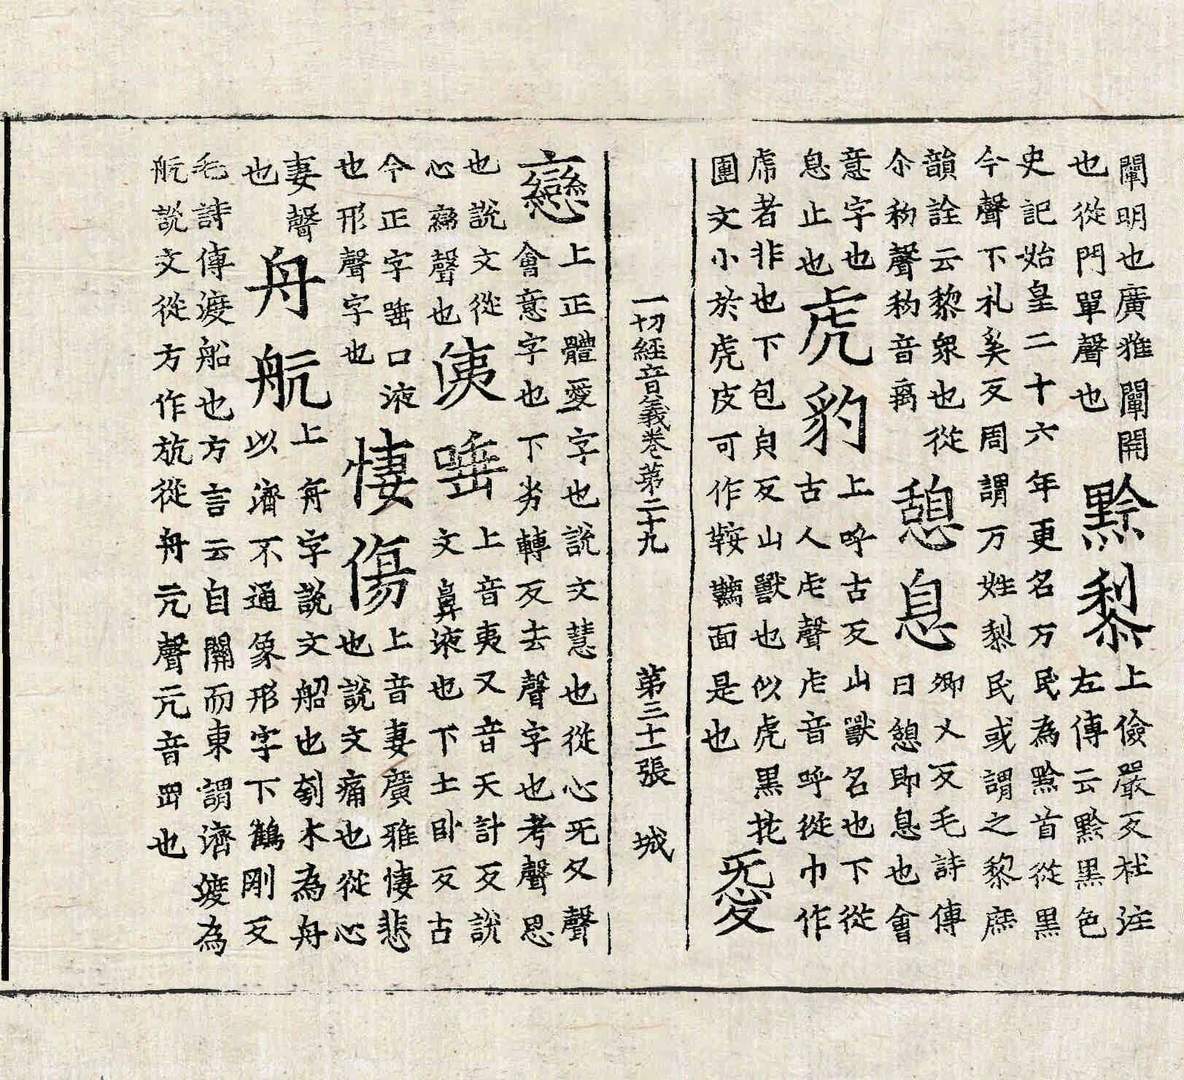 闡明也廣雅闡開
也從門單聲也
黔黎
上儉嚴反杜注
左傳云黔黑色
史記始皇二十六年更名万民為黔首從黑
今聲下礼奚反周謂万姓黎民或謂之黎庶
韻詮云黎衆也從
尒称聲称音
憩息
卿乂反毛詩傳
曰憩即息也會
意字也
息止也
虎豹
上呼古反山獸名也下從
古人虍聲虍音呼從巾作
虎者非也下包皃反山獸也似虎黑花
團文小於虎皮可作鞍韉面是也
㤅
一切經音義卷第二十九 第三十一張 城
戀
上正體愛字也說文慧也從心旡夂聲
會意字也下劣轉反去聲字也考聲思
也說文從
心䜌聲也
洟唾
上音夷又音天計反說
文鼻液也下土卧反古
今正字唾口液
也形聲字也
悽傷
上音妻廣雅悽悲
也說文痛也從心
妻聲
也
舟航
上舟字說文船也刳木為舟
以濟不通象形字下鶴剛反
毛詩傳渡船也方言云自關而東謂濟渡為
航說文從方作斻從舟亢聲亢音罡也